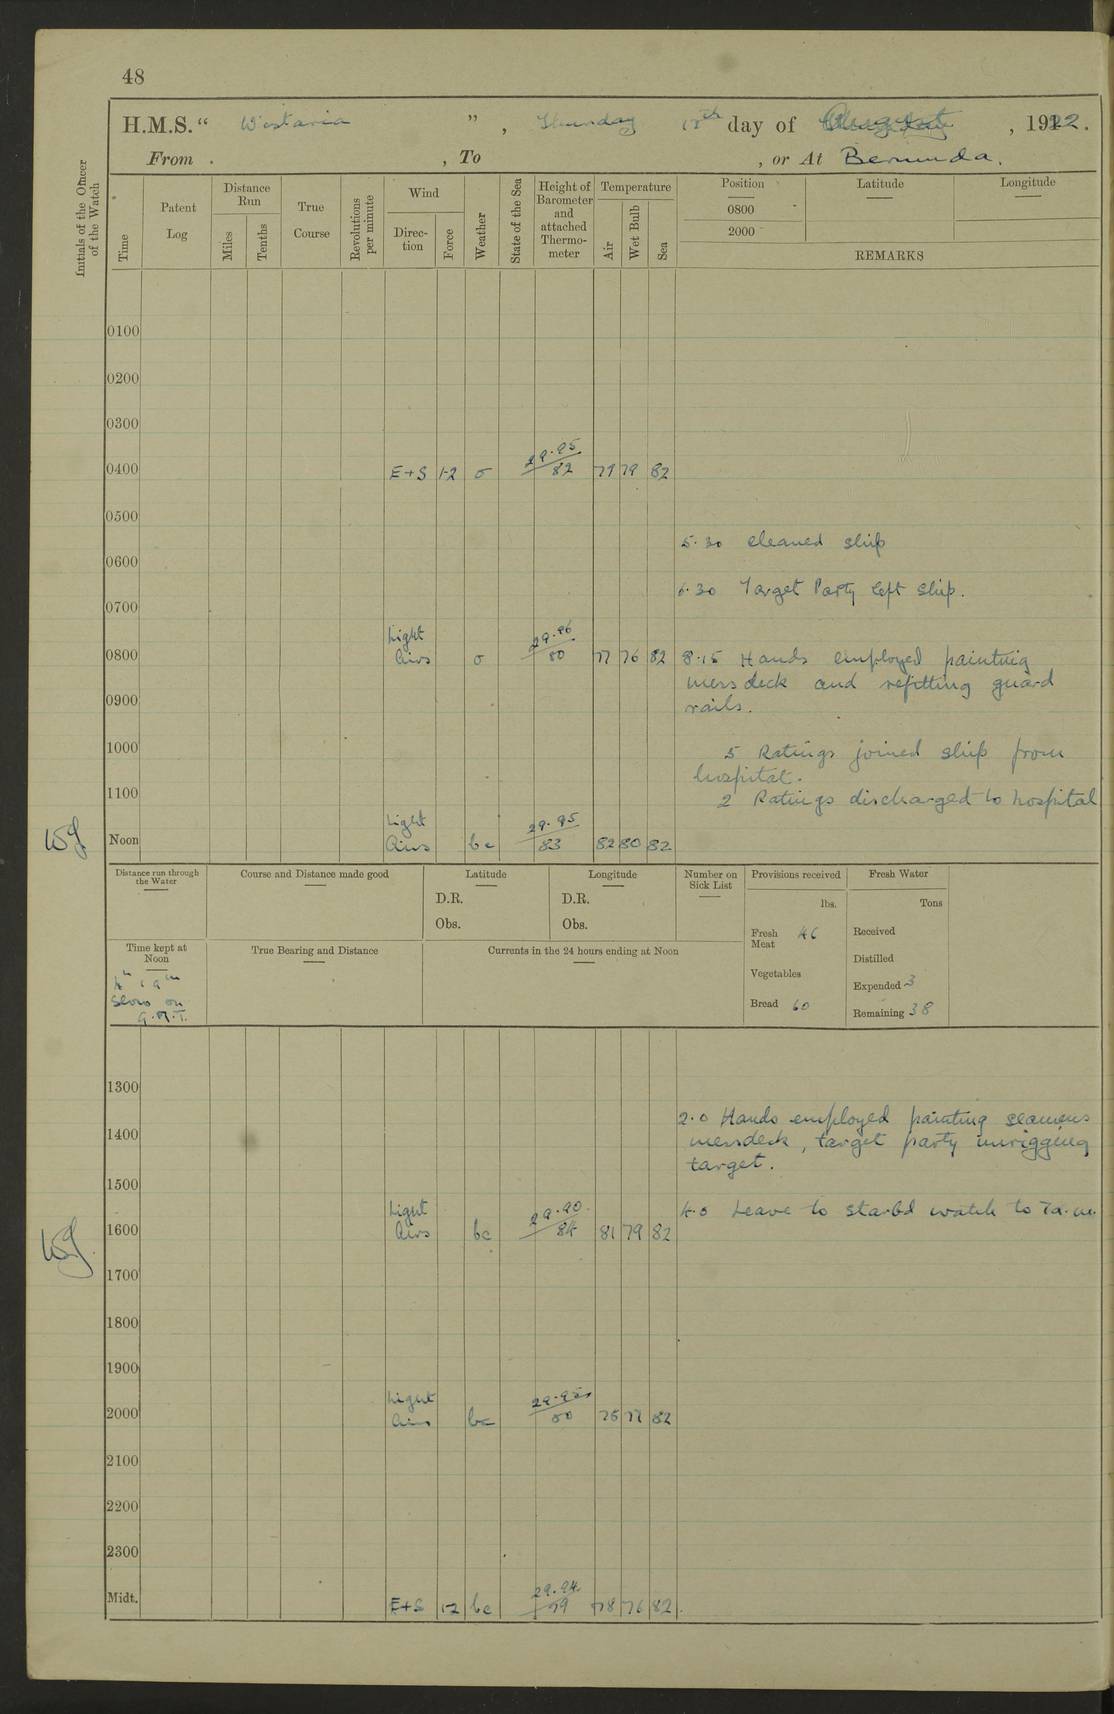 48
H.M.S. “ Wistaria ” , Thursday day of August , 1922.
From . , To , or At Bermuda.
Initials of the Officer of the Watch
Time
Patent Log
Distance Run
Miles
Tenths
True Course
Revolutions per minute
Wind
Direction
Force
Weather
State of the Sea
Height of Barometer and attached Thermometer
Temperature
Air
Wet Bulb
Sea
Position
0800
2000
Latitude
Longitude
REMARKS
0100
0200
0300
0400 E+S 1-2 o 29.95 82 79 82
0500
5.30 cleaned ship
0600
6.30 Target Party left ship.
0700
0800 Light Airs o 29.96 80 77 76 82 8.15 Hands employed painting
mess deck and refitting guard
0900
rails.
1000
5 Ratings joined ship from
hospital.
1100
2 Ratings discharged to hospital
Noon Light Airs bc 29.95 83 82 80 82
Distance run through the Water
Course and Distance made good
Latitude
D.R.
Obs.
Longitude
D.R.
Obs.
Number on Sick List
Provisions received
lbs.
Fresh Meat 46
Vegetables
Bread 60
Fresh Water
Tons
Received
Distilled
Expended 3
Remaining 38
Time kept at Noon
slow on
G.M.T.
True Bearing and Distance
Currents in the 24 hours ending at Noon
1300
2.0 Hands employed painting seamens
1400
messdeck, target party unrigging
target.
1500
4.0 Leave to starbd watch to 7a.m.
1600 Light Airs bc 29.90 84 81 79 82
1700
1800
1900
2000 Light Airs bc 29.95 80 77 82
2100
2200
2300
Midt. E+S 1-2 bc 29.94 79 78 76 82